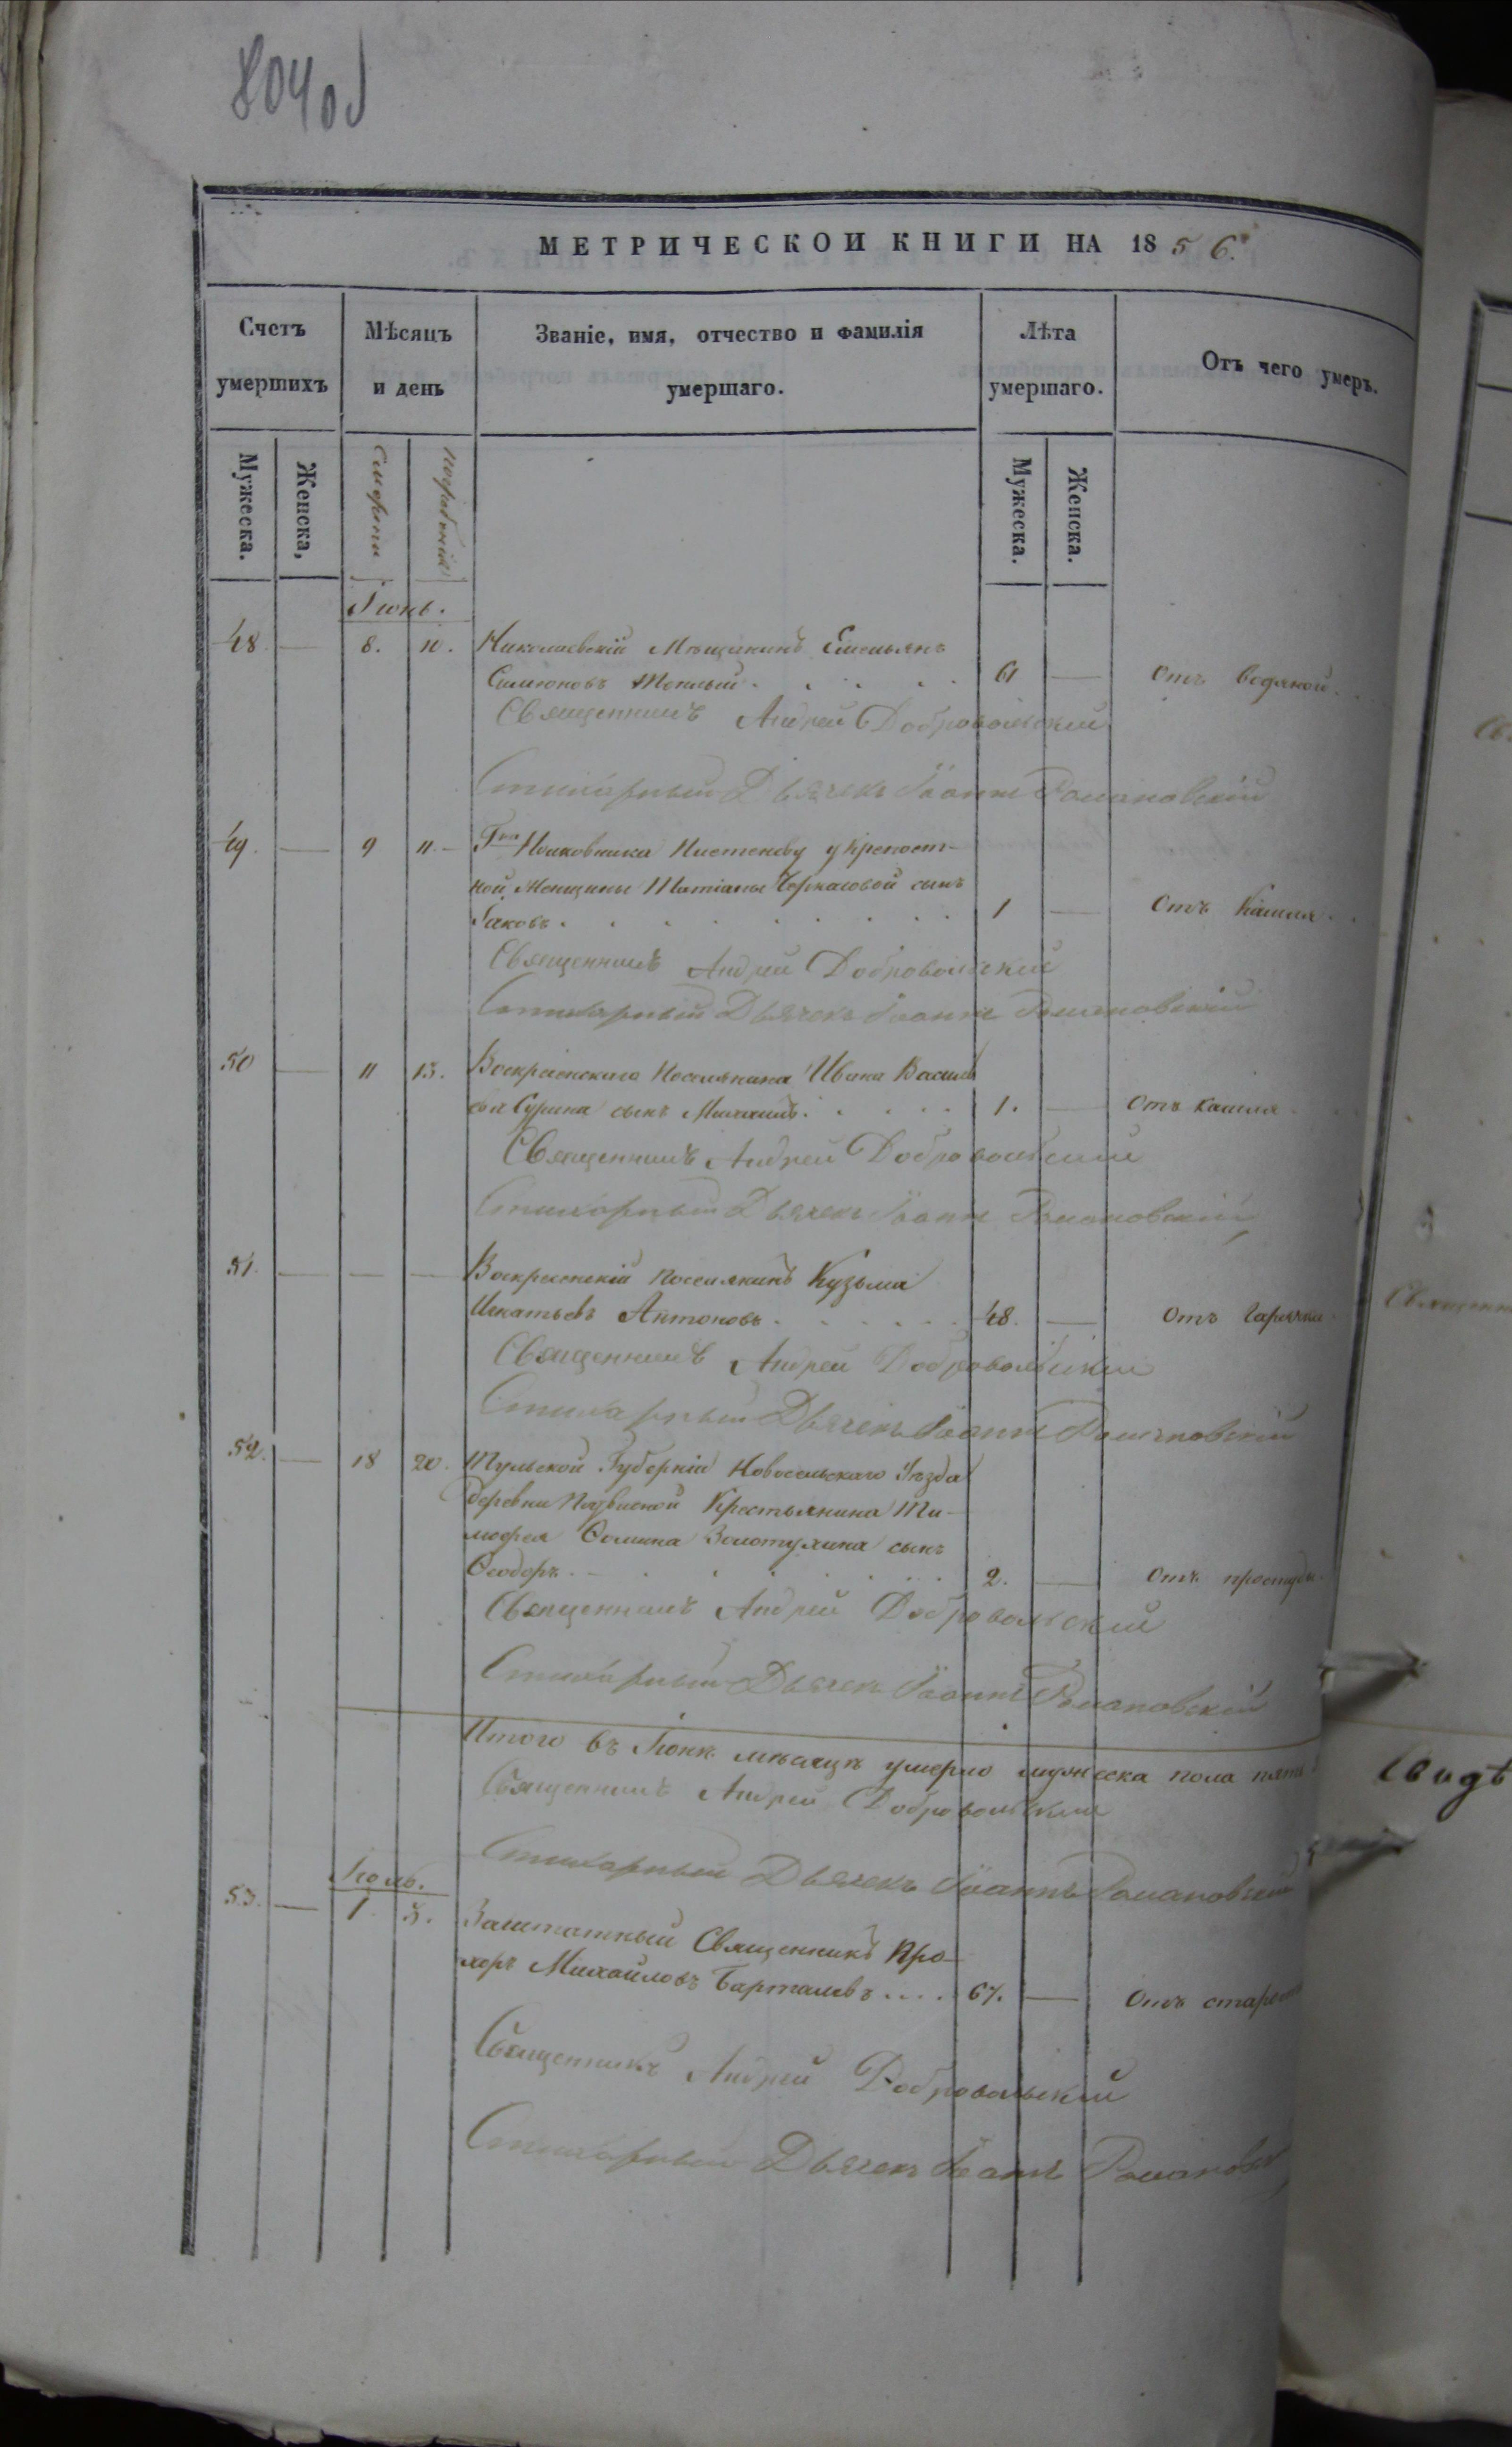 804об
МЕТРИЧЕСКОЙ КНИГИ НА 1856.
Счетъ умершихъ
Мѣсяцъ и день
Званіе, имя, отчество и фамилія умершаго.
Лѣта умершаго.
Отъ чего умеръ.
Мужеска. Женска, Смерти погребенія Мужеска. Женска.
Іюнь.
48 — 8. 10. Николаевскій Мѣщанинъ Емельянъ
Симіоновъ Теплый. 61 — Отъ водяной.
Священникъ Андрей Добровольскій
Стихарный Дьячекъ Іоаннъ Романовскій
49. — 9 11. Гна Полковника у крепост-
ной Женщины Татіаны Черкасовой сынъ
Іаковъ. 1 — Отъ Кашля.
Священникъ Андрей Добровольскій
Стихарный Дьячекъ Іоаннъ Романовскій
50 — 11 13. Воскресенскаго Поселянина Ивана Василь
ева Сурина сынъ Михаилъ. 1. — Отъ кашля
Священникъ Андрей Добровольскій
Стихарный Дьячекъ Іоаннъ Романовскій
51. — — — Воскресенскій Поселянинъ Кузьма
Игнатьевъ Антоновъ. 48. — Отъ Гарячки
Священникъ Андрей Добровольскій
Стихарный Дьячекъ Іоаннъ Романовскій
52. — 18 20. Тульской Губерніи Новосельскаго Уѣзда
деревни Крестьянина Ти-
мофея Фомина Золотухина сынъ
Феодоръ. 2. — Отъ простуды
Священникъ Андрей Добровольскій
Стихарный Дьячекъ Іоаннъ Романовскій
Итого въ Іюнѣ мѣсяцѣ умерло мужеска пола пять
Священникъ Андрей Добровольскій
Стихарный Дьячекъ Іоаннъ Романовскій
Іюль.
53. — 1. 3. Заштатный Священникъ Про-
хоръ Михайловъ Барталевъ.... 67. — Отъ старости
Священникъ Андрей Добровольскій
Стихарный Дьячекъ Іоаннъ Романовскій
Свидѣ